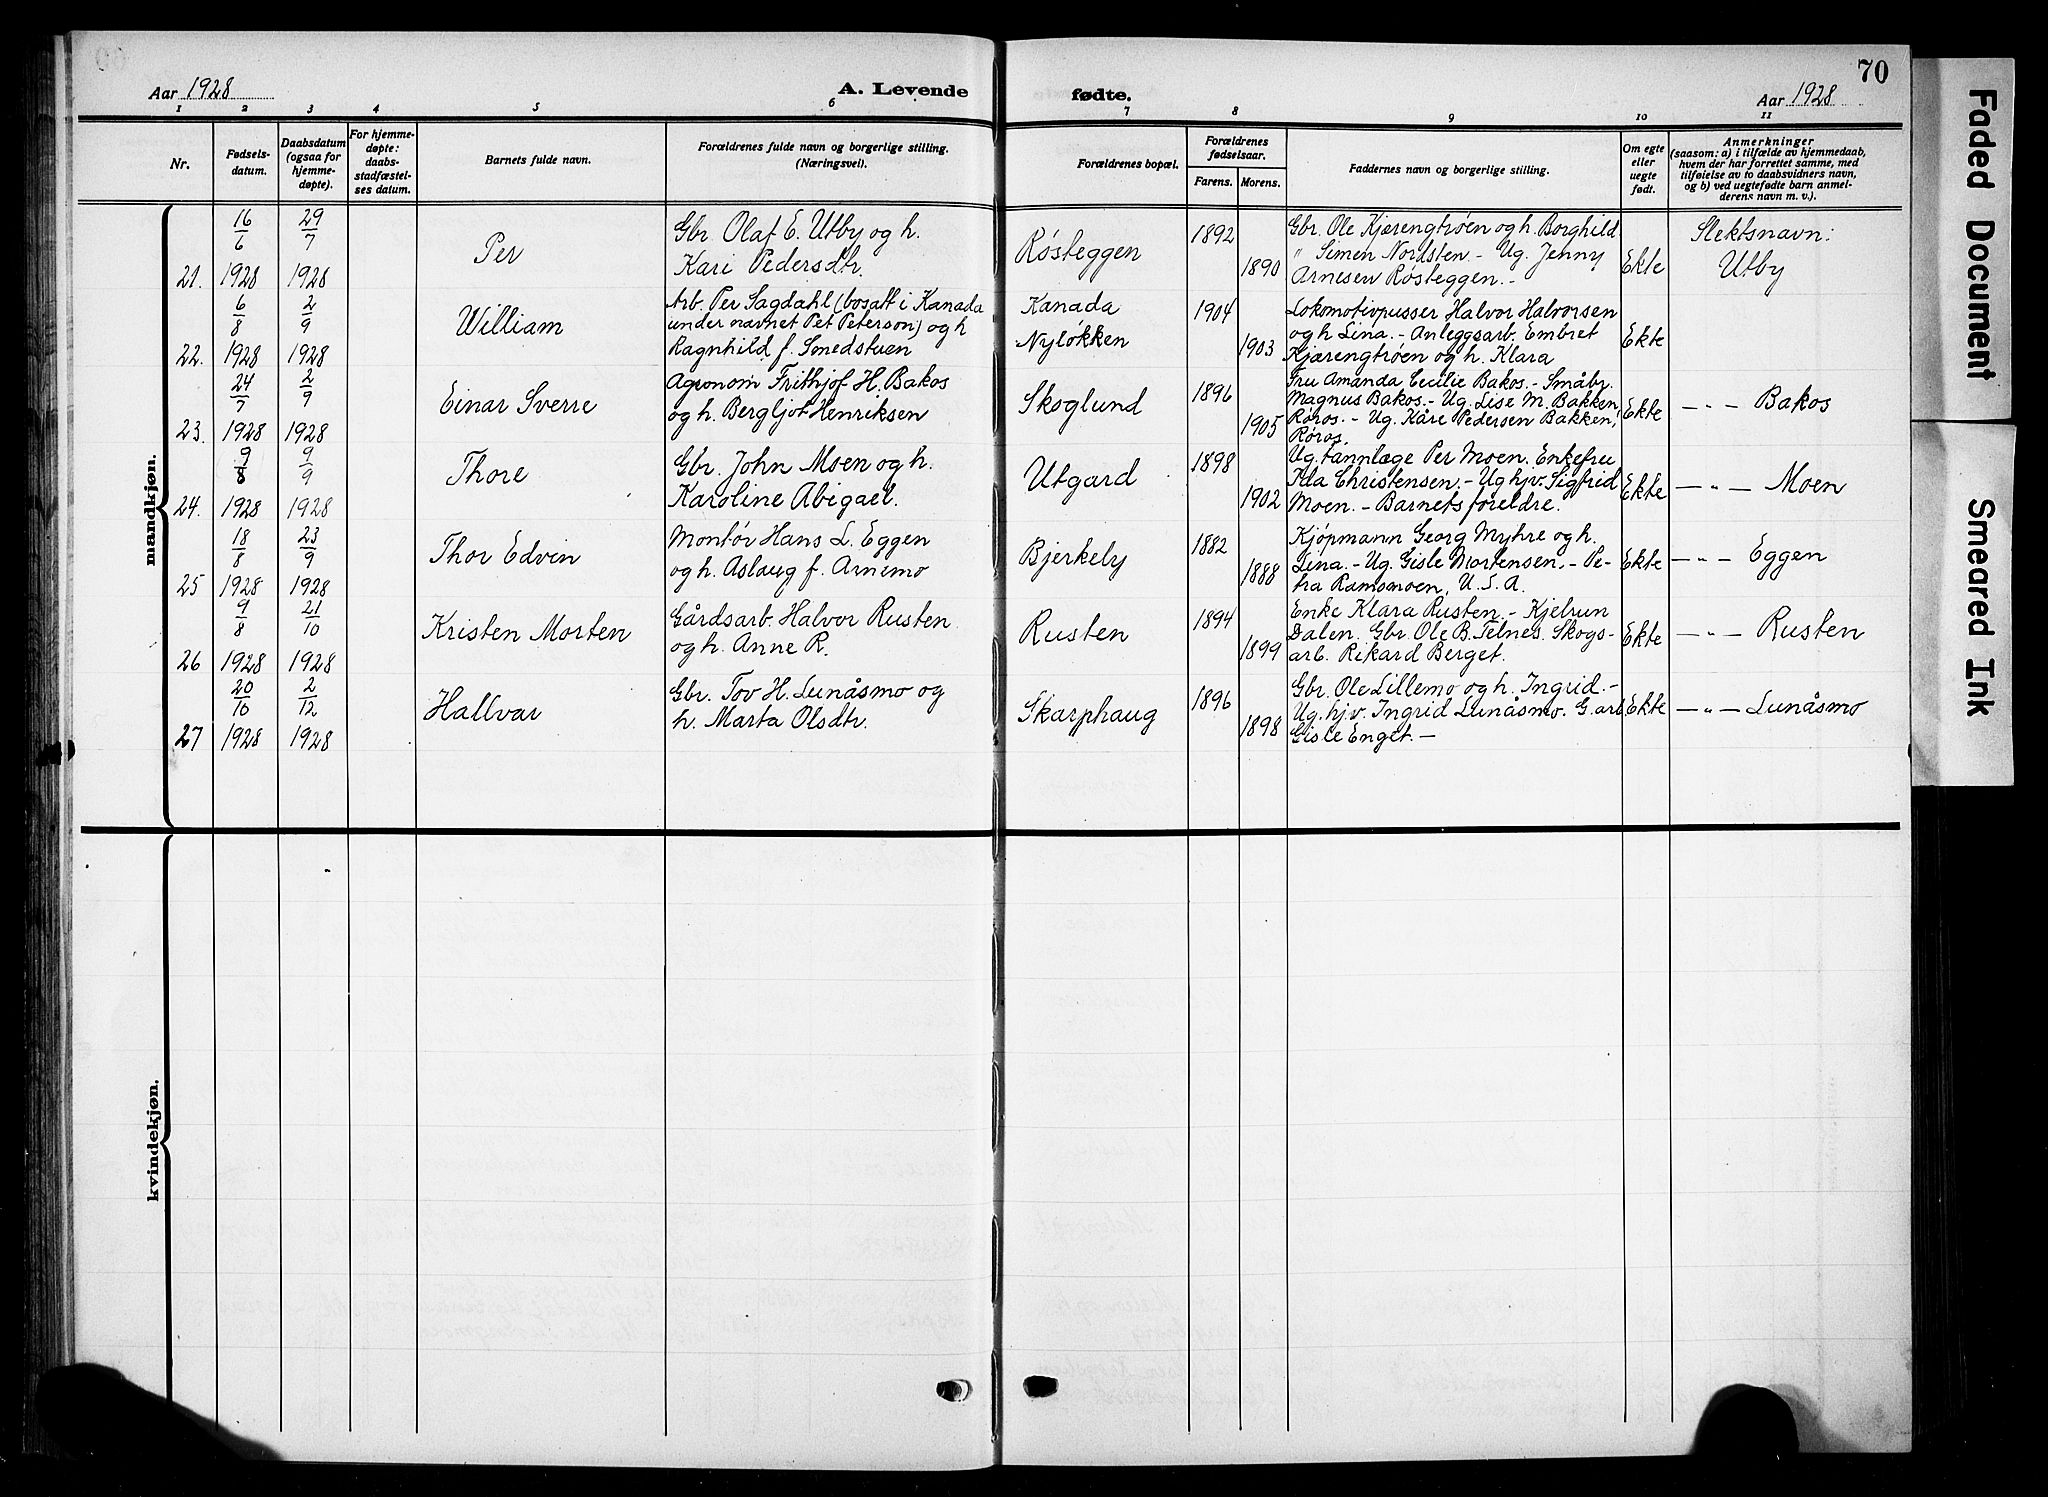 70
Aar 1928
A. Levende
fødte.
Aar 1928
1 2 3 4 5 6 7 8 9 10 11
Nr.
Fødsels-
datum.
Daabsdatum
(ogsaa for
hjemme-
døpte).
For hjemme-
døpte:
daabs-
stadfæstel-
ses datum.
Barnets fulde navn.
Forældrenes fulde navn og borgerlige stilling.
(Næringsvei).
Forældrenes bopæl.
Forældrenes
fødselsaar.
Farens. Morens.
Faddernes navn og borgerlige stilling.
Om egte
eller
uegte
født.
Anmerkninger
(saasom: a) i tilfælde av hjemmedaab,
hvem der har forrettet samme, med
tilføielse av to daabsvidners navn,
og b) ved uegtefødte barn anmel-
derens navn m. v.).
mandkjøn.
21.
16/6
1928
29/7
1928
Per
Gbr. Olaf E. Utby og h.
Kari Pedersdtr.
Røsteggen
1892
1890
Gbr. Ole Kjærengtrøen og h. Borghild
" Simen Nordsten. - Ug. Jenny
Arnesen Røsteggen. -
Ekte
Slektsnavn:
Utby
22.
6/8
1928
2/9
1928
William
Arb. Per Sagdahl (bosatt i Kanada
under navnet Pet Peterson) og h
Ragnhild f. Smedstuen
Kanada
Nyløkken
1904
1903
Lokomotivpusser Halvor Halvorsen
og h Lina. - Anleggsarb. Embret
Kjærengtrøen og h. Klara
Ekte
23.
24/7
1928
2/9
1928
Einar Sverre
Agronom Frithjof H. Bakos
og h. Bergljot Henriksen
Skoglund
1896
1905
Fru Amanda Cecilie Bakos. - Småbr.
Magnus Bakos. - Ug. Lise M. Bakken,
Røros. - Ug. Kåre Pedersen Bakken,
Røros.
Ekte
— " — Bakos
24.
9/8
1928
9/9
1928
Thore
Gbr. John Moen og h.
Karoline Abigael.
Utgard
1898
1902
Ug. tannlæge Per Moen. Enkefru
Ida Christensen. - Ug hjv. Sigfrid
Moen. - Barnets foreldre.
Ekte
— " — Moen
25
18/8
1928
23/9
1928
Thor Edvin
Montør Hans L. Eggen
og h. Aslaug f. Arnemo
Bjerkely
1882
1888
Kjøpmann Georg Myhre og h.
Lina. - Ug. Gisle Mortensen. - Pe-
tra Ramsmoen, U. S. A.
Ekte
— " — Eggen
26
9/8
1928
21/10
1928
Kristen Morten
Gårdsarb. Halvor Rusten
og h. Anne R.
Rusten
1894
1899
Enke Klara Rusten. - Kjelrun
Dalen. Gbr. Ole B. Telnes. Skogs-
arb. Rikard Berget.
Ekte
— " — Rusten
27
20/10
1928
2/12
1928
Hallvar
Gbr. Tov H. Lunåsmo og
h. Marta Olsdtr.
Skarphaug
1896
1898
Gbr. Ole Lillemo og h. Ingrid. -
Ug. hj.v. Ingrid Lunåsmo. G. arb
Gisle Enget. -
Ekte
— " — Lunåsmo
kvindekjøn.
Faded Document
Smeared Ink